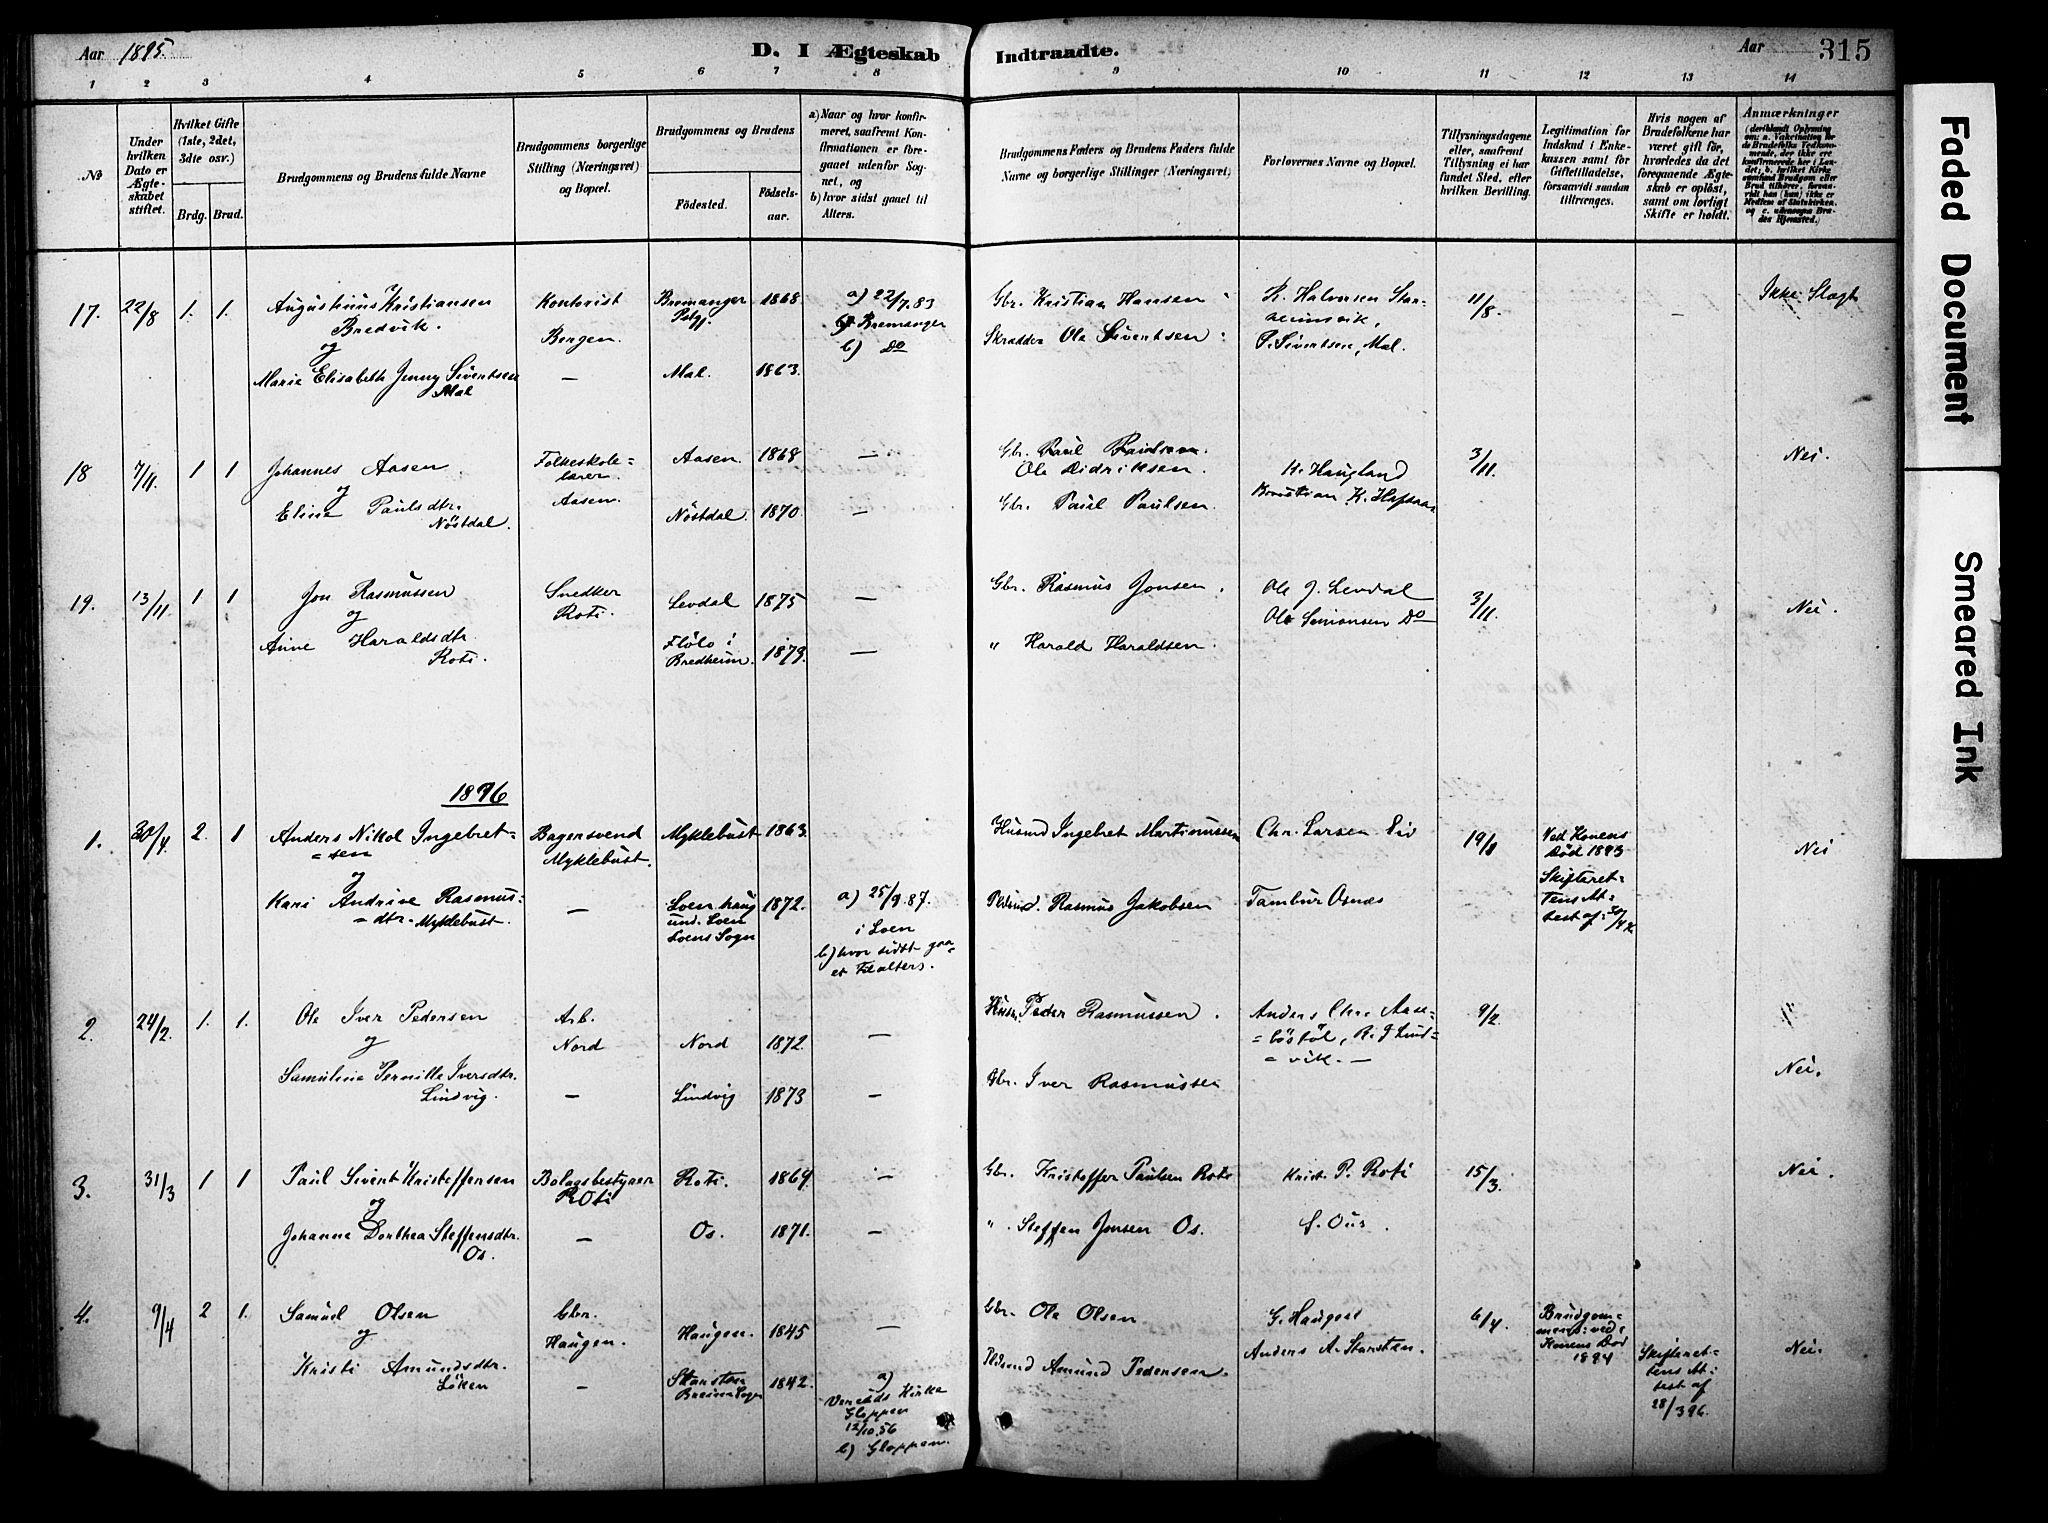 Aar 1895.
D. I Ægteskab Indtraadte.
Aar 315
1 2 3 4 5 6 7 8 9 10 11 12 13 14
No
Under hvilken Dato er Ægteskabet stiftet.
Hvilket Gifte (1ste, 2det, 3dte osv.)
Brdg. Brud.
Brudgommens og Brudens fulde Navne
Brudgommens borgerlige Stilling (Næringsvei) og Bopæl.
Brudgommens og Brudens
Fødested.
Fødselsaar.
a) Naar og hvor konfirmeret, saafremt Konfirmationen er foregaaet udenfor Sognet, og
b) hvor sidst gaaet til Alters.
Brudgommens Faders og Brudens Faders fulde Navne og borgerlige Stillinger (Næringsvei)
Forlovernes Navne og Bopæl.
Tillysningsdagene eller, saafremt Tillysning ei har fundet Sted, efter hvilken Bevilling.
Legitimation for Indskud i Enkekassen samt for Giftetilladelse, forsaavidt saadan tiltrænges.
Hvis nogen af Brudefolkene har været gift før, hvorledes da det foregaaende Ægteskab er opløst, samt om lovligt Skifte er holdt.
Anmærkninger
17. 22/8 1. 1. Augustinus Kristiansen Kontorist Bremanger 1868 a) 22/7.83 Gbr. Kristian Hansen K. Halvorsen 11/8 Ikke Slagt
Bredvik. Bergen. Pstgj. Bremanger Skrædder Ole Sivertsen P. Sivertsen, Mal.
og b) Do
Marie Elisabeth Jenny Sivertsen — Mal. 1863.
Mal
18 7/11 1 1 Johannes Aasen Folkeskole= Aasen. 1868 — Gbr. Paul Paulsen 3/11. Nei.
og lærer Ole Didriksen. K. Haugland
Eline Paulsdtr. Aasen. Nöstdal. 1870 — Gbr. Paul Paulsen.
Nöstdal.
19. 13/11 1 1 Jon Rasmussen Snedker Levdal 1875 — Gbr. Rasmus Jonsen. Ole J. Levdal 3/11. Nei.
og Roti. Ole Simonsen Do
Anne Haraldsdtr. Flölo i 1873. — " Harald Haraldsen.
Roti. Bredheim.
1896
1. 30/4 2. 1 Anders Nikol Ingebret= Bagersvend Myklebust 1863. Husmd Ingebret Martinussen Chr. Larsen Eiv Ved Konens Nei
=sen Myklebust. Död 1893
og Skifteret=
Kari Andrine Rasmus= — Loen haug 1872. a) 25/9.87. Rasmus Jakobsen Tambur Osnæs tens At=
=dtr. Myklebust. und. Loen i Loen test af
Loens Sogn b) hvor sidst gaa=
et til alters.
2. 24/2. 1. 1. Ole Iver Pedersen Arb. Peder Rasmussen. Anders Chr. Aase= 9/2
og Nord Nord 1872. — =löstöl, R. J. Lind=
Samuline Pernille Iversdtr. =vik. —
Lindvig. — Lindvig 1873 — Gbr. Iver Rasmussen Nei.
3. 31/3 1 1 Paul Sivert Kristoffersen Bolagsbestyrer Roti. 1869 — Gbr. Kristoffer Paulsen Roti Krist. P. Roti 15/3. Nei.
og Roti
Johanne Dorthea Steffensdtr. — Os. 1871. — ". Steffen Jonsen Os. S. Ous.
Os.
4. 9/4 2 1. Samuel Olsen Gbr. Haugen. 1845 — Gbr. Ole Olsen G. Haugen 6/4 Brudgom=
og Haugen. mens: ved
Kristi Amundsdtr. — 1842. a) Amund Pedersen. Anders A. Starstan. Konens Död
Löken Breims Sogn Vereids Kirke 1894 Skifteret= Nei.
Gloppen tens At=
12/10.56 test af
b) Gloppen. 28/3 96.
Faded Document
Smeared Ink